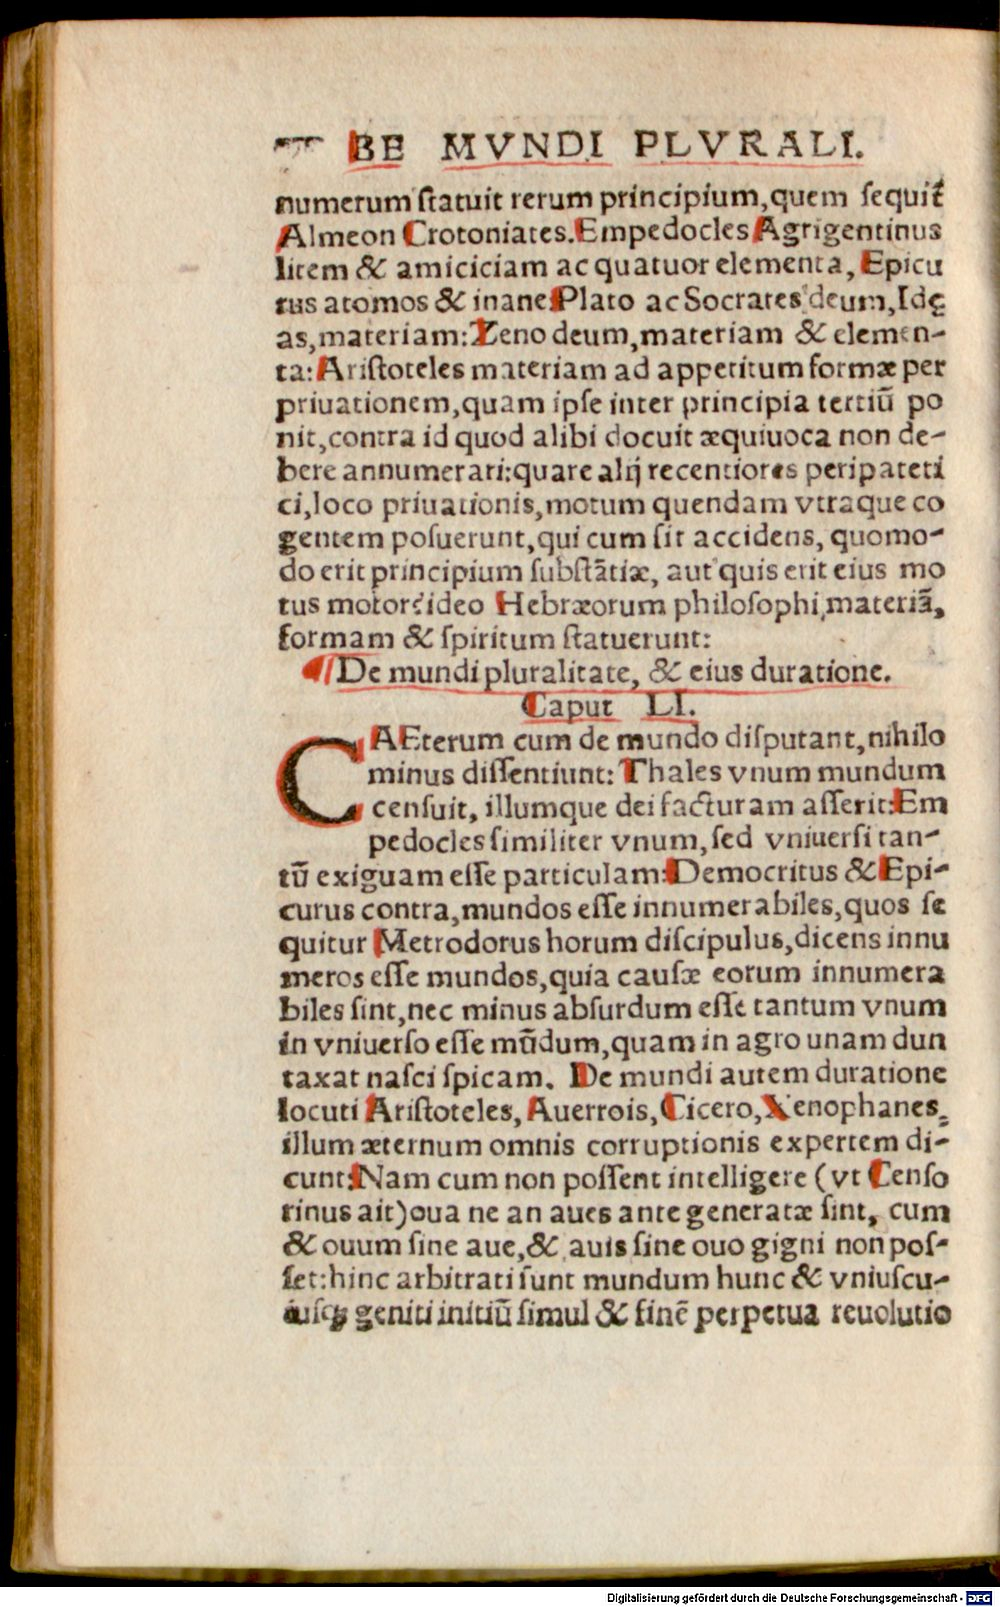 BE MVNDI PLVRALI.
numerum ſtatuit rerum principium,quem ſequit̃
Almeon Crotoniates.Empedocles Agrigentinus
litem & amiciciam ac quatuor elementa, Epicu
rus atomos & inane:Plato ac Socrates deum,Idę
as,materiam:Zeno deum,materiam & elemen-
ta:Ariſtoteles materiam ad appetitum formæ per
priuationem,quam ipſe inter principia tertiũ po
nit,contra id quod alibi docuit æquiuoca non de-
bere annumerari:quare alij recentiores peripateti
ci,loco priuationis,motum quendam vtraque co
gentem poſuerunt,qui cum ſit accidens, quomo-
do erit principium ſubſtãtiæ, aut quis erit eius mo
tus motor?ideo Hebræorum philoſophi,materiã,
formam & ſpiritum ſtatuerunt:
De mundi pluralitate, & eius duratione.
Caput LI.
CAEterum cum de mundo diſputant,nihilo
minus diſſentiunt:Thales vnum mundum
cenſuit, illumque dei facturam aſſerit:Em
pedocles ſimiliter vnum,ſed vniuerſi tan-
tũ exiguam eſſe particulam:Democritus & Epi-
curus contra,mundos eſſe innumerabiles,quos ſe
quitur Metrodorus horum diſcipulus,dicens innu
meros eſſe mundos,quia cauſæ eorum innumera
biles ſint,nec minus abſurdum eſſe tantum vnum
in vniuerſo eſſe mũdum,quam in agro unam dun
taxat naſci ſpicam. De mundi autem duratione
locuti Ariſtoteles, Auerrois,Cicero,Xenophanes,
illum æternum omnis corruptionis expertem di-
cunt:Nam cum non poſſent intelligere (vt Cenſo
rinus ait)oua ne an aues ante generatæ ſint, cum
& ouum ſine aue,& auis ſine ouo gigni non poſ-
ſet:hinc arbitrati ſunt mundum hunc & vniuſcu-
iuſq; geniti initiũ ſimul & finẽ perpetua reuolutio
Digitalisierung gefördert durch die Deutsche Forschungsgemeinschaft - DFG